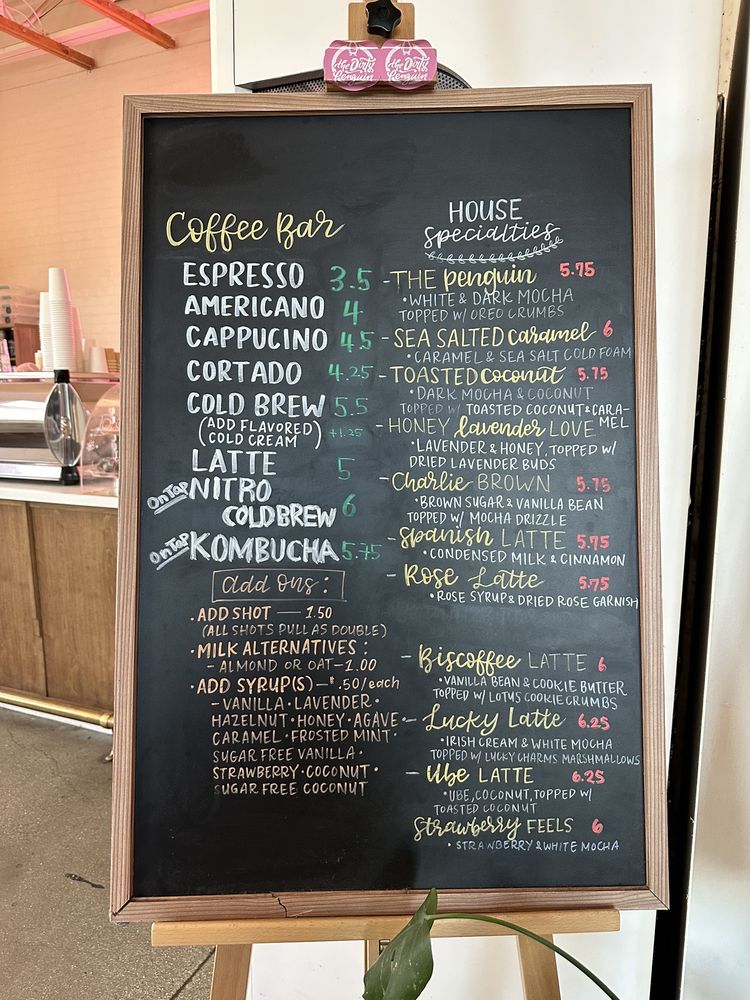 the Dirty Penguin
the Dirty Penguin
Coffee Bar
ESPRESSO 3.5
AMERICANO 4
CAPPUCINO 4.5
CORTADO 4.25
COLD BREW 5.5
(ADD FLAVORED
COLD CREAM) +1.25
LATTE 5
On Tap NITRO
COLD BREW 6
On Tap KOMBUCHA 5.75
add ons:
• ADD SHOT — 1.50
(ALL SHOTS PULL AS DOUBLE)
• MILK ALTERNATIVES:
- ALMOND OR OAT - 1.00
• ADD SYRUP(S) - $.50/each
- VANILLA • LAVENDER •
HAZELNUT • HONEY • AGAVE •
CARAMEL • FROSTED MINT •
SUGAR FREE VANILLA •
STRAWBERRY • COCONUT •
SUGAR FREE COCONUT
HOUSE
Specialties
- THE penguin 5.75
• WHITE & DARK MOCHA
TOPPED W/ OREO CRUMBS
- SEA SALTED caramel 6
• CARAMEL & SEA SALT COLD FOAM
- TOASTED coconut 5.75
• DARK MOCHA & COCONUT
TOPPED W/ TOASTED COCONUT & CARA-
MEL
- HONEY lavender LOVE
• LAVENDER & HONEY, TOPPED W/
DRIED LAVENDER BUDS
- Charlie BROWN 5.75
• BROWN SUGAR & VANILLA BEAN
TOPPED W/ MOCHA DRIZZLE
- Spanish LATTE 5.75
• CONDENSED MILK & CINNAMON
- Rose Latte 5.75
• ROSE SYRUP & DRIED ROSE GARNISH
- Biscoffee LATTE 6
• VANILLA BEAN & COOKIE BUTTER
TOPPED W/ LOTUS COOKIE CRUMBS
- Lucky Latte 6.25
• IRISH CREAM & WHITE MOCHA
TOPPED W/ LUCKY CHARMS MARSHMALLOWS
- Ube LATTE 6.25
• UBE, COCONUT, TOPPED W/
TOASTED COCONUT
Strawberry FEELS 6
• STRAWBERRY & WHITE MOCHA